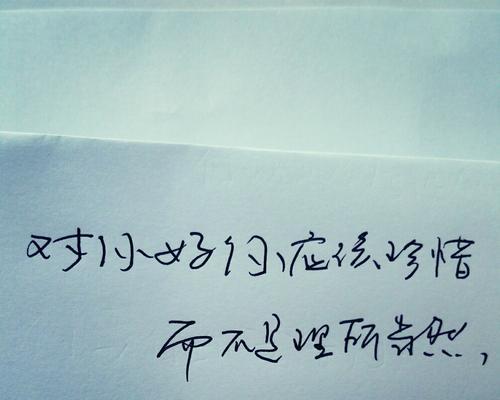 对你好你应该珍惜
而不是理所当然，